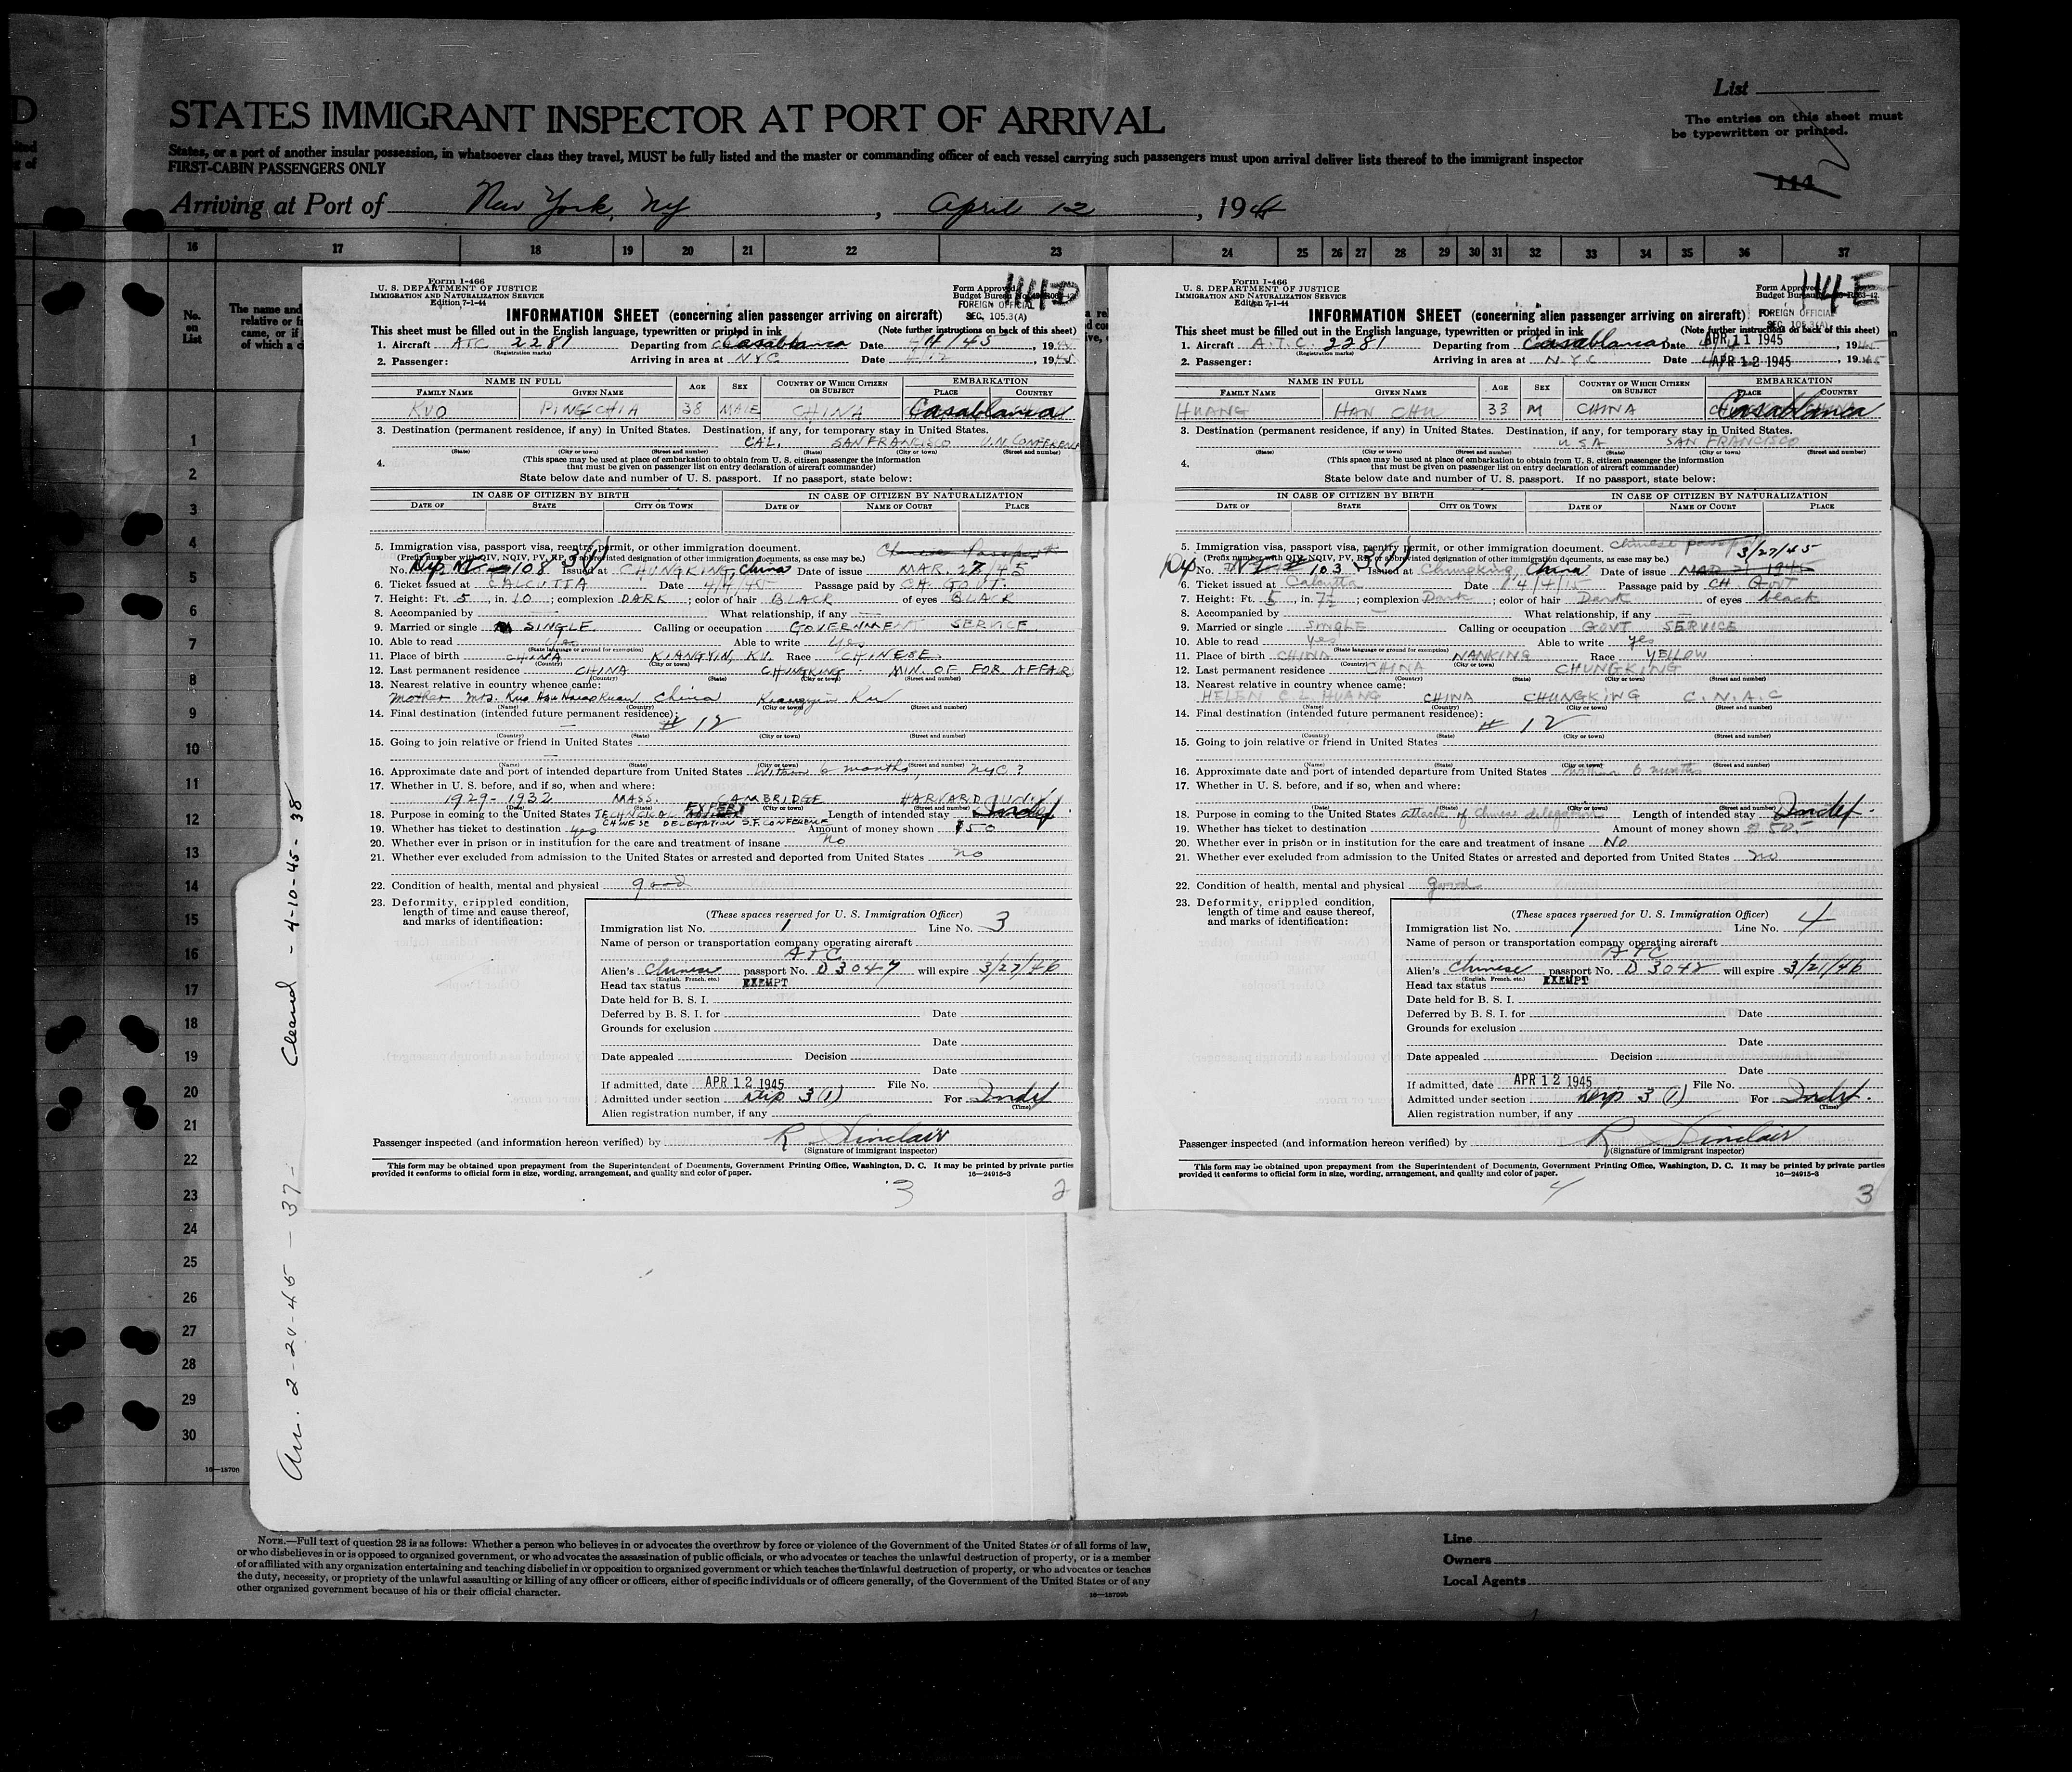 STATES IMMIGRANT INSPECTOR AT PORT OF ARRIVAL
List
The entries on this sheet must
be typewritten or printed.
States, or a port of another insular possession, in whatsoever class they travel, MUST be fully listed and the master or commanding officer of each vessel carrying such passengers must upon arrival deliver lists thereof to the immigrant inspector
FIRST-CABIN PASSENGERS ONLY
114
Arriving at Port of New York, NY, April 12, 194
16 17 18 19 20 21 22 23 24 25 26 27 28 29 30 31 32 33 34 35 36 37
No.
on
List
The name and
relative or fr
came, or if
of which a c
1
2
3
4
5
6
7
8
9
10
11
12
13
14
15
16
17
18
19
20
21
22
23
24
25
26
27
28
29
30
16—18706
2-20-45 - 37 - Cleared - 4-10-45 - 38
Form I-466
U. S. DEPARTMENT OF JUSTICE
IMMIGRATION AND NATURALIZATION SERVICE
Edition 7-1-44
Form Approved
Budget Bureau No.
114D
FOREIGN OFFICIAL
SEC. 105.3(A)
INFORMATION SHEET (concerning alien passenger arriving on aircraft)
This sheet must be filled out in the English language, typewritten or printed in ink (Note further instructions on back of this sheet)
1. Aircraft ATC 2281 Departing from Casablanca Date 4/11/45, 1945
(Registration marks)
2. Passenger: Arriving in area at NYC Date 4/12, 1945
NAME IN FULL AGE SEX COUNTRY OF WHICH CITIZEN OR SUBJECT EMBARKATION
FAMILY NAME GIVEN NAME PLACE COUNTRY
KUO PINGCHIA 38 MALE CHINA Casablanca
3. Destination (permanent residence, if any) in United States. Destination, if any, for temporary stay in United States.
CAL. SAN FRANCISCO U.N. CONFERENCE
(State) (City or town) (Street and number) (State) (City or town) (Street and number)
4. (This space may be used at place of embarkation to obtain from U. S. citizen passenger the information
that must be given on passenger list on entry declaration of aircraft commander)
State below date and number of U. S. passport. If no passport, state below:
IN CASE OF CITIZEN BY BIRTH IN CASE OF CITIZEN BY NATURALIZATION
DATE OF STATE CITY OR TOWN DATE OF NAME OF COURT PLACE
5. Immigration visa, passport visa, reentry permit, or other immigration document. Chinese Passport
(Prefix number with QIV, NQIV, PV, RP, or abbreviated designation of other immigration documents, as case may be.)
No. Dip 108 3(1) Issued at CHUNGKING, China Date of issue MAR. 27/45
6. Ticket issued at CALCUTTA Date 4/4/45 Passage paid by CH. GOVT.
7. Height: Ft. 5, in. 10; complexion DARK; color of hair BLACK of eyes BLACK
8. Accompanied by — What relationship, if any —
9. Married or single SINGLE. Calling or occupation GOVERNMENT SERVICE
10. Able to read yes Able to write yes
(State language or ground for exemption)
11. Place of birth CHINA KIANGYIN, KU. Race CHINESE.
(Country) (City or town)
12. Last permanent residence CHINA CHUNGKING MIN. OF FOR. AFFAIR
(Country) (State) (City or town) (Street and number)
13. Nearest relative in country whence came:
Mother Mrs. Kuo China Kiangyin Ku
(Name) (Country) (City or town) (Street and number)
14. Final destination (intended future permanent residence): # 12
(Country) (State) (City or town) (Street and number)
15. Going to join relative or friend in United States
(Name) (State) (City or town) (Street and number)
16. Approximate date and port of intended departure from United States Within 6 months, NYC?
17. Whether in U. S. before, and if so, when and where:
1929-1932 MASS. CAMBRIDGE HARVARD UNIV.
(Date) (State) (City or town) (Street and number)
18. Purpose in coming to the United States TECHNICAL EXPERT Length of intended stay Indef.
CHINESE DELEGATION S.F. CONFERENCE
19. Whether has ticket to destination yes Amount of money shown $50
20. Whether ever in prison or in institution for the care and treatment of insane No
21. Whether ever excluded from admission to the United States or arrested and deported from United States no
22. Condition of health, mental and physical good
23. Deformity, crippled condition,
length of time and cause thereof,
and marks of identification:
(These spaces reserved for U. S. Immigration Officer)
Immigration list No. 1 Line No. 3
Name of person or transportation company operating aircraft
ATC
Alien's Chinese passport No. D 3047 will expire 3/27/46
(English, French, etc.)
Head tax status EXEMPT
Date held for B. S. I.
Deferred by B. S. I. for Date
Grounds for exclusion
Date
Date appealed Decision
Date
If admitted, date APR 12 1945 File No.
Admitted under section Dip 3 (1) For Indef
(Time)
Alien registration number, if any
Passenger inspected (and information hereon verified) by R Sinclair
(Signature of immigrant inspector)
This form may be obtained upon prepayment from the Superintendent of Documents, Government Printing Office, Washington, D. C. It may be printed by private parties
provided it conforms to official form in size, wording, arrangement, and quality and color of paper. 16—24915-3
3 2
Form I-466
U. S. DEPARTMENT OF JUSTICE
IMMIGRATION AND NATURALIZATION SERVICE
Edition 7-1-44
Form Approved
Budget Bureau No.
114E
FOREIGN OFFICIAL
SEC. 105.3(A)
INFORMATION SHEET (concerning alien passenger arriving on aircraft)
This sheet must be filled out in the English language, typewritten or printed in ink (Note further instructions on back of this sheet)
1. Aircraft A.T.C. 2281 Departing from Casablanca Date APR 11 1945, 1945
(Registration marks)
2. Passenger: Arriving in area at N.Y.C Date APR 12 1945, 1945
NAME IN FULL AGE SEX COUNTRY OF WHICH CITIZEN OR SUBJECT EMBARKATION
FAMILY NAME GIVEN NAME PLACE COUNTRY
HUANG HAN CHU 33 M CHINA Casablanca
3. Destination (permanent residence, if any) in United States. Destination, if any, for temporary stay in United States.
USA SAN FRANCISCO
(State) (City or town) (Street and number) (State) (City or town) (Street and number)
4. (This space may be used at place of embarkation to obtain from U. S. citizen passenger the information
that must be given on passenger list on entry declaration of aircraft commander)
State below date and number of U. S. passport. If no passport, state below:
IN CASE OF CITIZEN BY BIRTH IN CASE OF CITIZEN BY NATURALIZATION
DATE OF STATE CITY OR TOWN DATE OF NAME OF COURT PLACE
5. Immigration visa, passport visa, reentry permit, or other immigration document. Chinese passport
(Prefix number with QIV, NQIV, PV, RP, or abbreviated designation of other immigration documents, as case may be.) 3/27/45
Dip No. 103 3(1) Issued at Chungking China Date of issue
6. Ticket issued at Calcutta Date Passage paid by CH. GOVT
7. Height: Ft. 5, in. 7½; complexion Dark; color of hair Dark of eyes black
8. Accompanied by — What relationship, if any —
9. Married or single SINGLE Calling or occupation GOVT SERVICE
10. Able to read yes Able to write yes
(State language or ground for exemption)
11. Place of birth CHINA NANKING Race YELLOW
(Country) (City or town)
12. Last permanent residence CHINA CHUNGKING
(Country) (State) (City or town) (Street and number)
13. Nearest relative in country whence came:
HELEN C.L. HUANG CHINA CHUNGKING C.N.A.C
(Name) (Country) (City or town) (Street and number)
14. Final destination (intended future permanent residence): # 12
(Country) (State) (City or town) (Street and number)
15. Going to join relative or friend in United States
(Name) (State) (City or town) (Street and number)
16. Approximate date and port of intended departure from United States Within 6 months
17. Whether in U. S. before, and if so, when and where:
(Date) (State) (City or town) (Street and number)
18. Purpose in coming to the United States attaché of Chinese delegation Length of intended stay Indef.
19. Whether has ticket to destination Amount of money shown
20. Whether ever in prison or in institution for the care and treatment of insane No
21. Whether ever excluded from admission to the United States or arrested and deported from United States no
22. Condition of health, mental and physical good
23. Deformity, crippled condition,
length of time and cause thereof,
and marks of identification:
(These spaces reserved for U. S. Immigration Officer)
Immigration list No. 1 Line No. 4
Name of person or transportation company operating aircraft
ATC
Alien's Chinese passport No. D 3042 will expire 3/21/46
(English, French, etc.)
Head tax status EXEMPT
Date held for B. S. I.
Deferred by B. S. I. for Date
Grounds for exclusion
Date
Date appealed Decision
Date
If admitted, date APR 12 1945 File No.
Admitted under section Dip 3 (1) For Indef.
(Time)
Alien registration number, if any
Passenger inspected (and information hereon verified) by R Sinclair
(Signature of immigrant inspector)
This form may be obtained upon prepayment from the Superintendent of Documents, Government Printing Office, Washington, D. C. It may be printed by private parties
provided it conforms to official form in size, wording, arrangement, and quality and color of paper. 16—24915-3
4 3
NOTE.—Full text of question 28 is as follows: Whether a person who believes in or advocates the overthrow by force or violence of the Government of the United States or of all forms of law,
or who disbelieves in or is opposed to organized government, or who advocates the assassination of public officials, or who advocates or teaches the unlawful destruction of property, or is a member
of or affiliated with any organization entertaining and teaching disbelief in or opposition to organized government or which teaches the unlawful destruction of property, or who advocates or teaches
the duty, necessity, or propriety of the unlawful assaulting or killing of any officer or officers, either of specific individuals or of officers generally, of the Government of the United States or of any
other organized government because of his or their official character.
16—18706b
Line
Owners
Local Agents